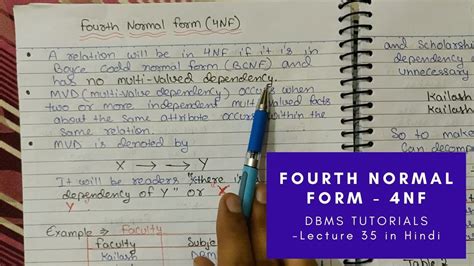 Fourth Normal form (4NF)
• A relation will be in 4NF if it is in
Boyce Codd normal form (BCNF) and
has no multi-valued dependency.
• MVD (multi-value dependency) occurs when
two or more independent multi valued facts
about the same attribute occurs within the
same relation.
• MVD is denoted by
X →→ Y
It will be readers "there is
dependency of Y" or X
Y
Example → Faculty
Faculty Subje
Kailash DBM
and scholarsh
dependency
unnecessary
Kailash
Kailash
So to make
Can decomp
Table 2
FOURTH NORMAL
FORM - 4NF
DBMS TUTORIALS
-Lecture 35 in Hindi